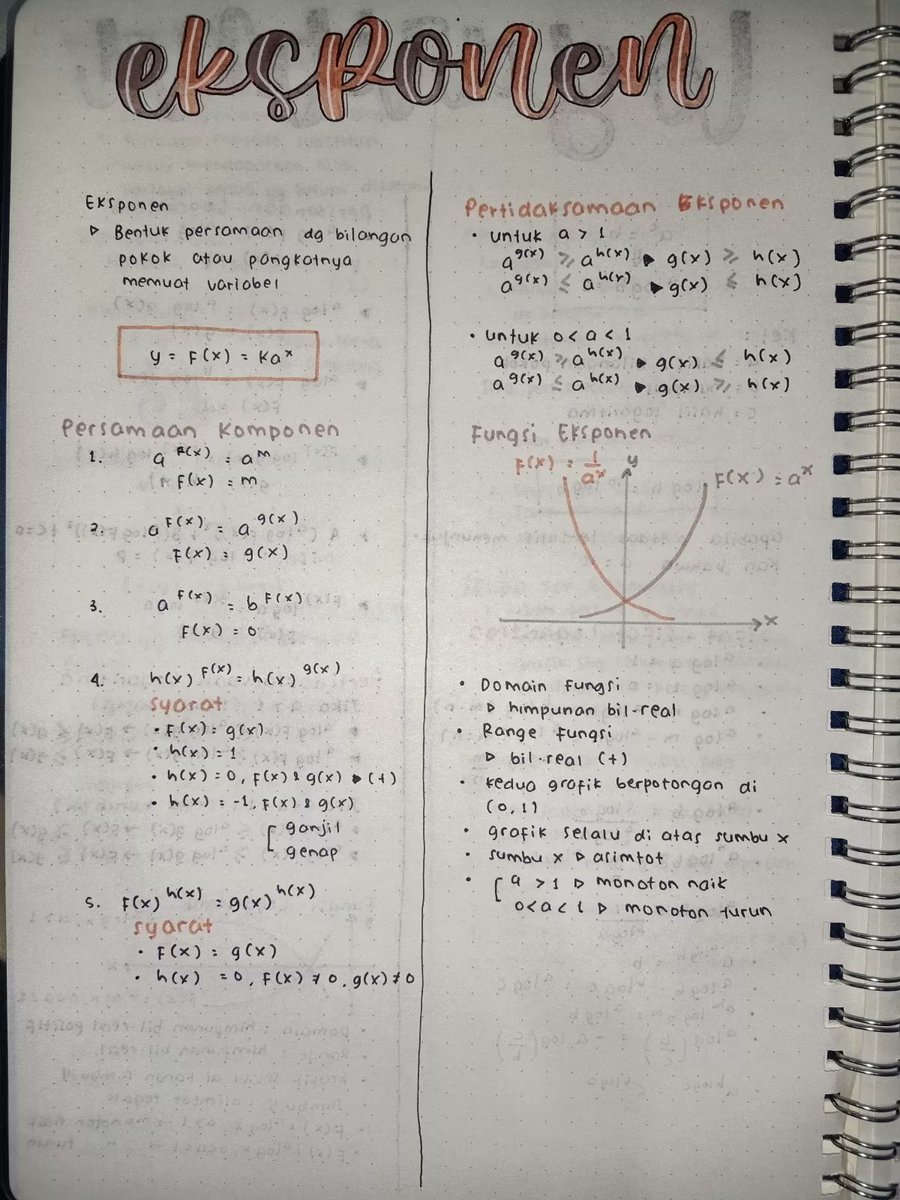 eksponen
Eksponen
▷ Bentuk persamaan dg bilangan
pokok atau pangkatnya
memuat variabel
y = F(x) = Ka^x
Persamaan Komponen
1. a^F(x) = a^m
F(x) = m
2. a^F(x) = a^g(x)
F(x) = g(x)
3. a^F(x) = b^F(x)
F(x) = 0
4. h(x)^F(x) = h(x)^g(x)
syarat
• F(x) = g(x)
• h(x) = 1
• h(x) = 0, F(x) & g(x) ▶ (+)
• h(x) = -1, F(x) & g(x)
[ ganjil
genap
5. F(x)^h(x) = g(x)^h(x)
syarat
• F(x) = g(x)
• h(x) = 0, F(x) ≠ 0, g(x) ≠ 0
Pertidaksamaan Eksponen
• untuk a > 1
a^g(x) ≥ a^h(x) ▶ g(x) ≥ h(x)
a^g(x) ≤ a^h(x) ▶ g(x) ≤ h(x)
• untuk 0 < a < 1
a^g(x) ≥ a^h(x) ▶ g(x) ≤ h(x)
a^g(x) ≤ a^h(x) ▶ g(x) ≥ h(x)
Fungsi Eksponen
F(x) = 1/a^x
y
F(x) = a^x
x
• Domain fungsi
▷ himpunan bil. real
• Range fungsi
▷ bil. real (+)
• kedua grafik berpotongan di
(0,1)
• grafik selalu di atas sumbu x
• sumbu x ▷ asimtot
• [ a > 1 ▷ monoton naik
0 < a < 1 ▷ monoton turun